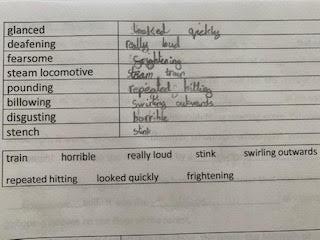 glanced looked quickly
deafening really loud
fearsome frightening
steam locomotive steam train
pounding repeated hitting
billowing swirling outwards
disgusting horrible
stench stink
train horrible really loud stink swirling outwards
repeated hitting looked quickly frightening